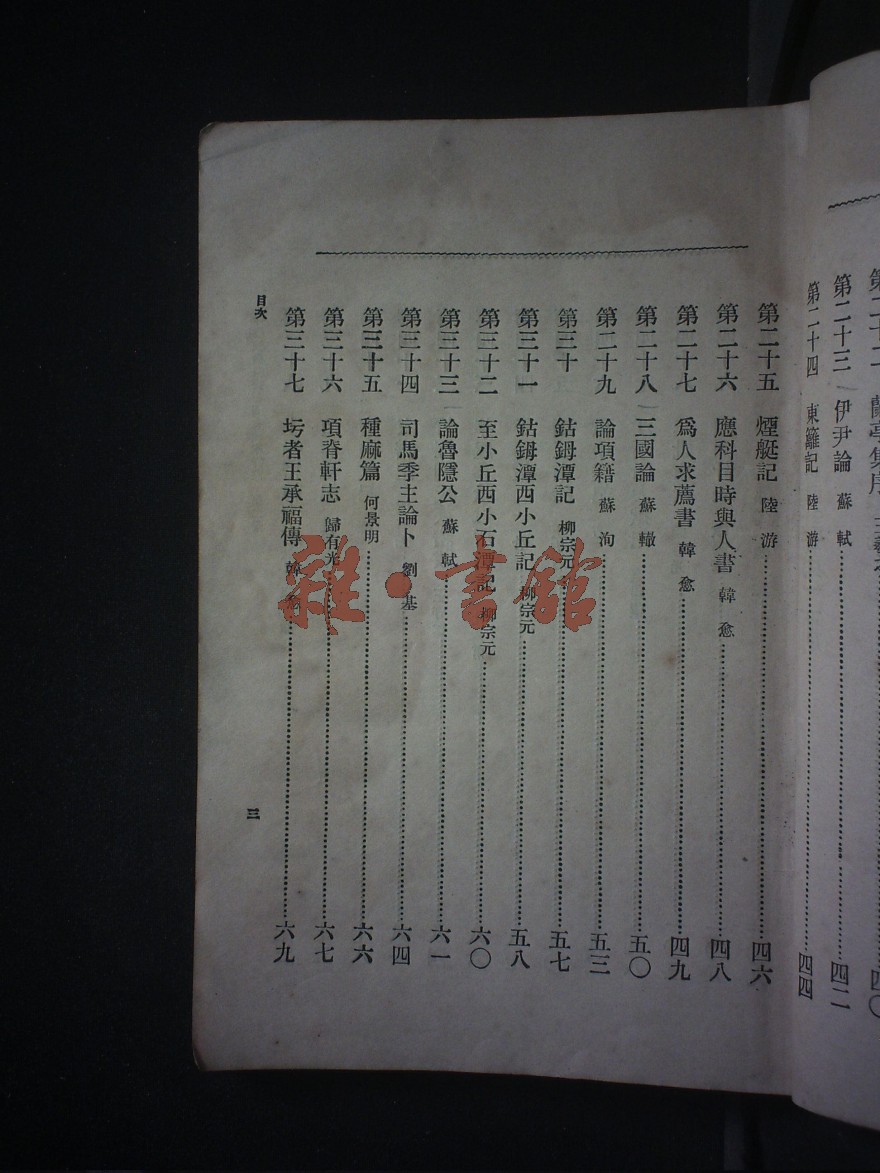 第二十三 伊尹論 蘇軾 四二
第二十四 東籬記 陸游 四四
第二十五 煙艇記 陸游 四六
第二十六 應科目時與人書 韓愈 四八
第二十七 爲人求薦書 韓愈 四九
第二十八 三國論 蘇轍 五〇
第二十九 論項籍 蘇洵 五三
第三十 鈷鉧潭記 柳宗元 五七
第三十一 鈷鉧潭西小丘記 柳宗元 五八
第三十二 至小丘西小石潭記 柳宗元 六〇
第三十三 論魯隱公 蘇軾 六一
第三十四 司馬季主論卜 劉基 六四
第三十五 種麻篇 何景明 六六
第三十六 項脊軒志 歸有光 六七
第三十七 圬者王承福傳 韓愈 六九
目次 三
雜·書館